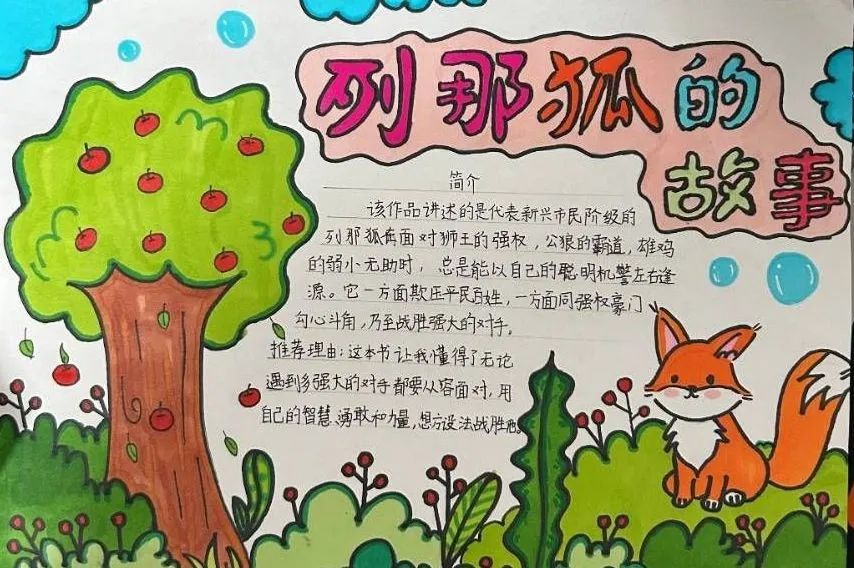 列那狐的
故事
简介
该作品讲述的是代表新兴市民阶级的
列那狐每面对狮王的强权，公狼的霸道，雄鸡
的弱小无助时，总是能以自己的聪明机警左右逢
源。它一方面欺压平民百姓，一方面同强权豪门
勾心斗角，乃至战胜强大的对手。
推荐理由：这本书让我懂得了无论
遇到多强大的对手都要从容面对，用
自己的智慧、勇敢和力量，想方设法战胜他。